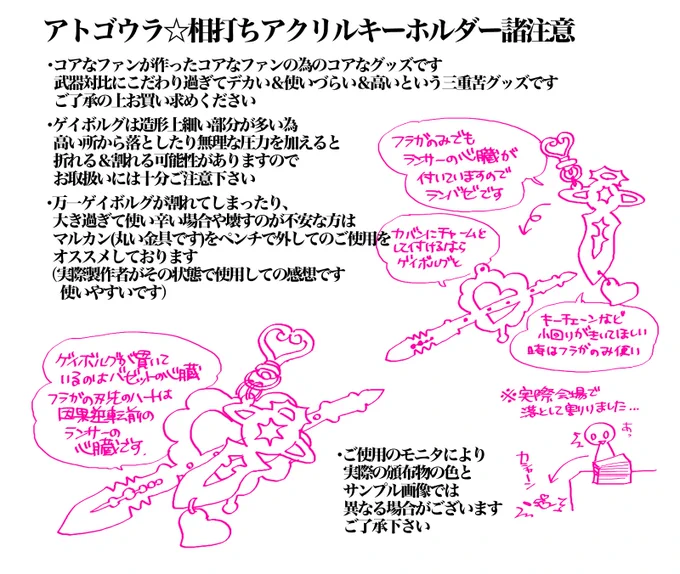 アトゴウラ☆相打ちアクリルキーホルダー諸注意
・コアなファンが作ったコアなファンの為のコアなグッズです
武器対比にこだわり過ぎてデカい＆使いづらい＆高いという三重苦グッズです
ご了承の上お買い求めください
・ゲイボルグは造形上細い部分が多い為
高い所から落としたり無理な圧力を加えると
折れる＆割れる可能性がありますので
お取扱いには十分ご注意下さい
・万一ゲイボルグが割れてしまったり、
大き過ぎて使い辛い場合や壊すのが不安な方は
マルカン(丸い金具です)をペンチで外してのご使用を
オススメしております
(実際製作者がその状態で使用しての感想です
使いやすいです)
フラガのみでも
ランサーの心臓が
付いていますので
ランバゼです
カバンにチャームと
して付けるなら
ゲイボルグと
キーチェーンなど
小回りがきいてほしい
時はフラガのみ使い
ゲイボルグが貫いて
いるのはバゼットの心臓
フラガの刃先のハートは
因果逆転前の
ランサーの
心臓です.
※実際会場で
落として割りました…
あ。
カシャーン
・ご使用のモニタにより
実際の頒布物の色と
サンプル画像では
異なる場合がございます
ご了承下さい